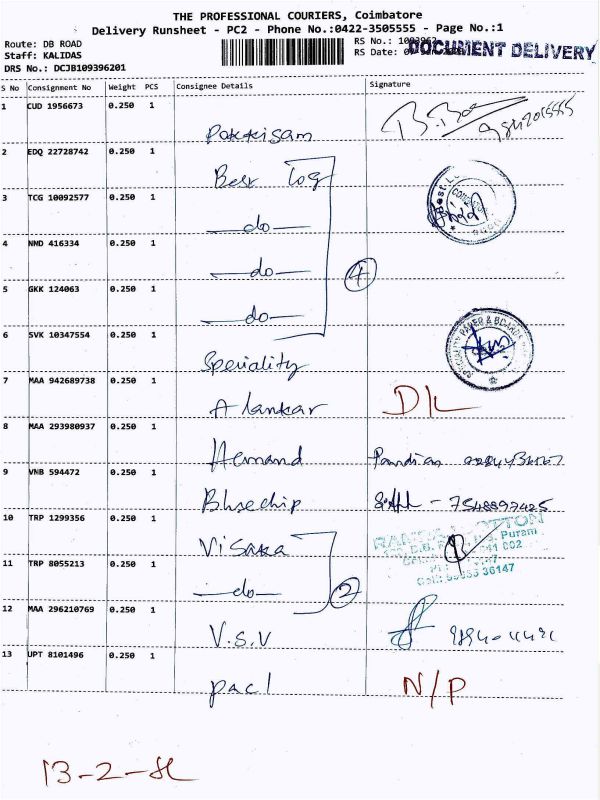 THE PROFESSIONAL COURIERS, Coimbatore
Delivery Runsheet - PC2 - Phone No.:0422-3505555 - Page No.:1
Route: DB ROAD RS No.:
DOCUMENT DELIVERY
Staff: KALIDAS RS Date:
DRS No.: DCJB109396201
S No Consignment No Weight PCS Consignee Details Signature
1 CUD 1956673 0.250 1
2 EDQ 22728742 0.250 1 Best Log
3 TCG 10092577 0.250 1 -do-
4 NND 416334 0.250 1 -do- 4
5 GKK 124063 0.250 1 -do-
6 SVK 10347554 0.250 1 Speciality
7 MAA 942689738 0.250 1 Alankar DL
8 MAA 293980937 0.250 1 Hemand Pandian
9 VNB 594472 0.250 1 Bluechip - 7548897425
10 TRP 1299356 0.250 1 Visaka
11 TRP 8055213 0.250 1 -do- 2
12 MAA 296210769 0.250 1 V.S.V
13 UPT 8101496 0.250 1 pacl N/P